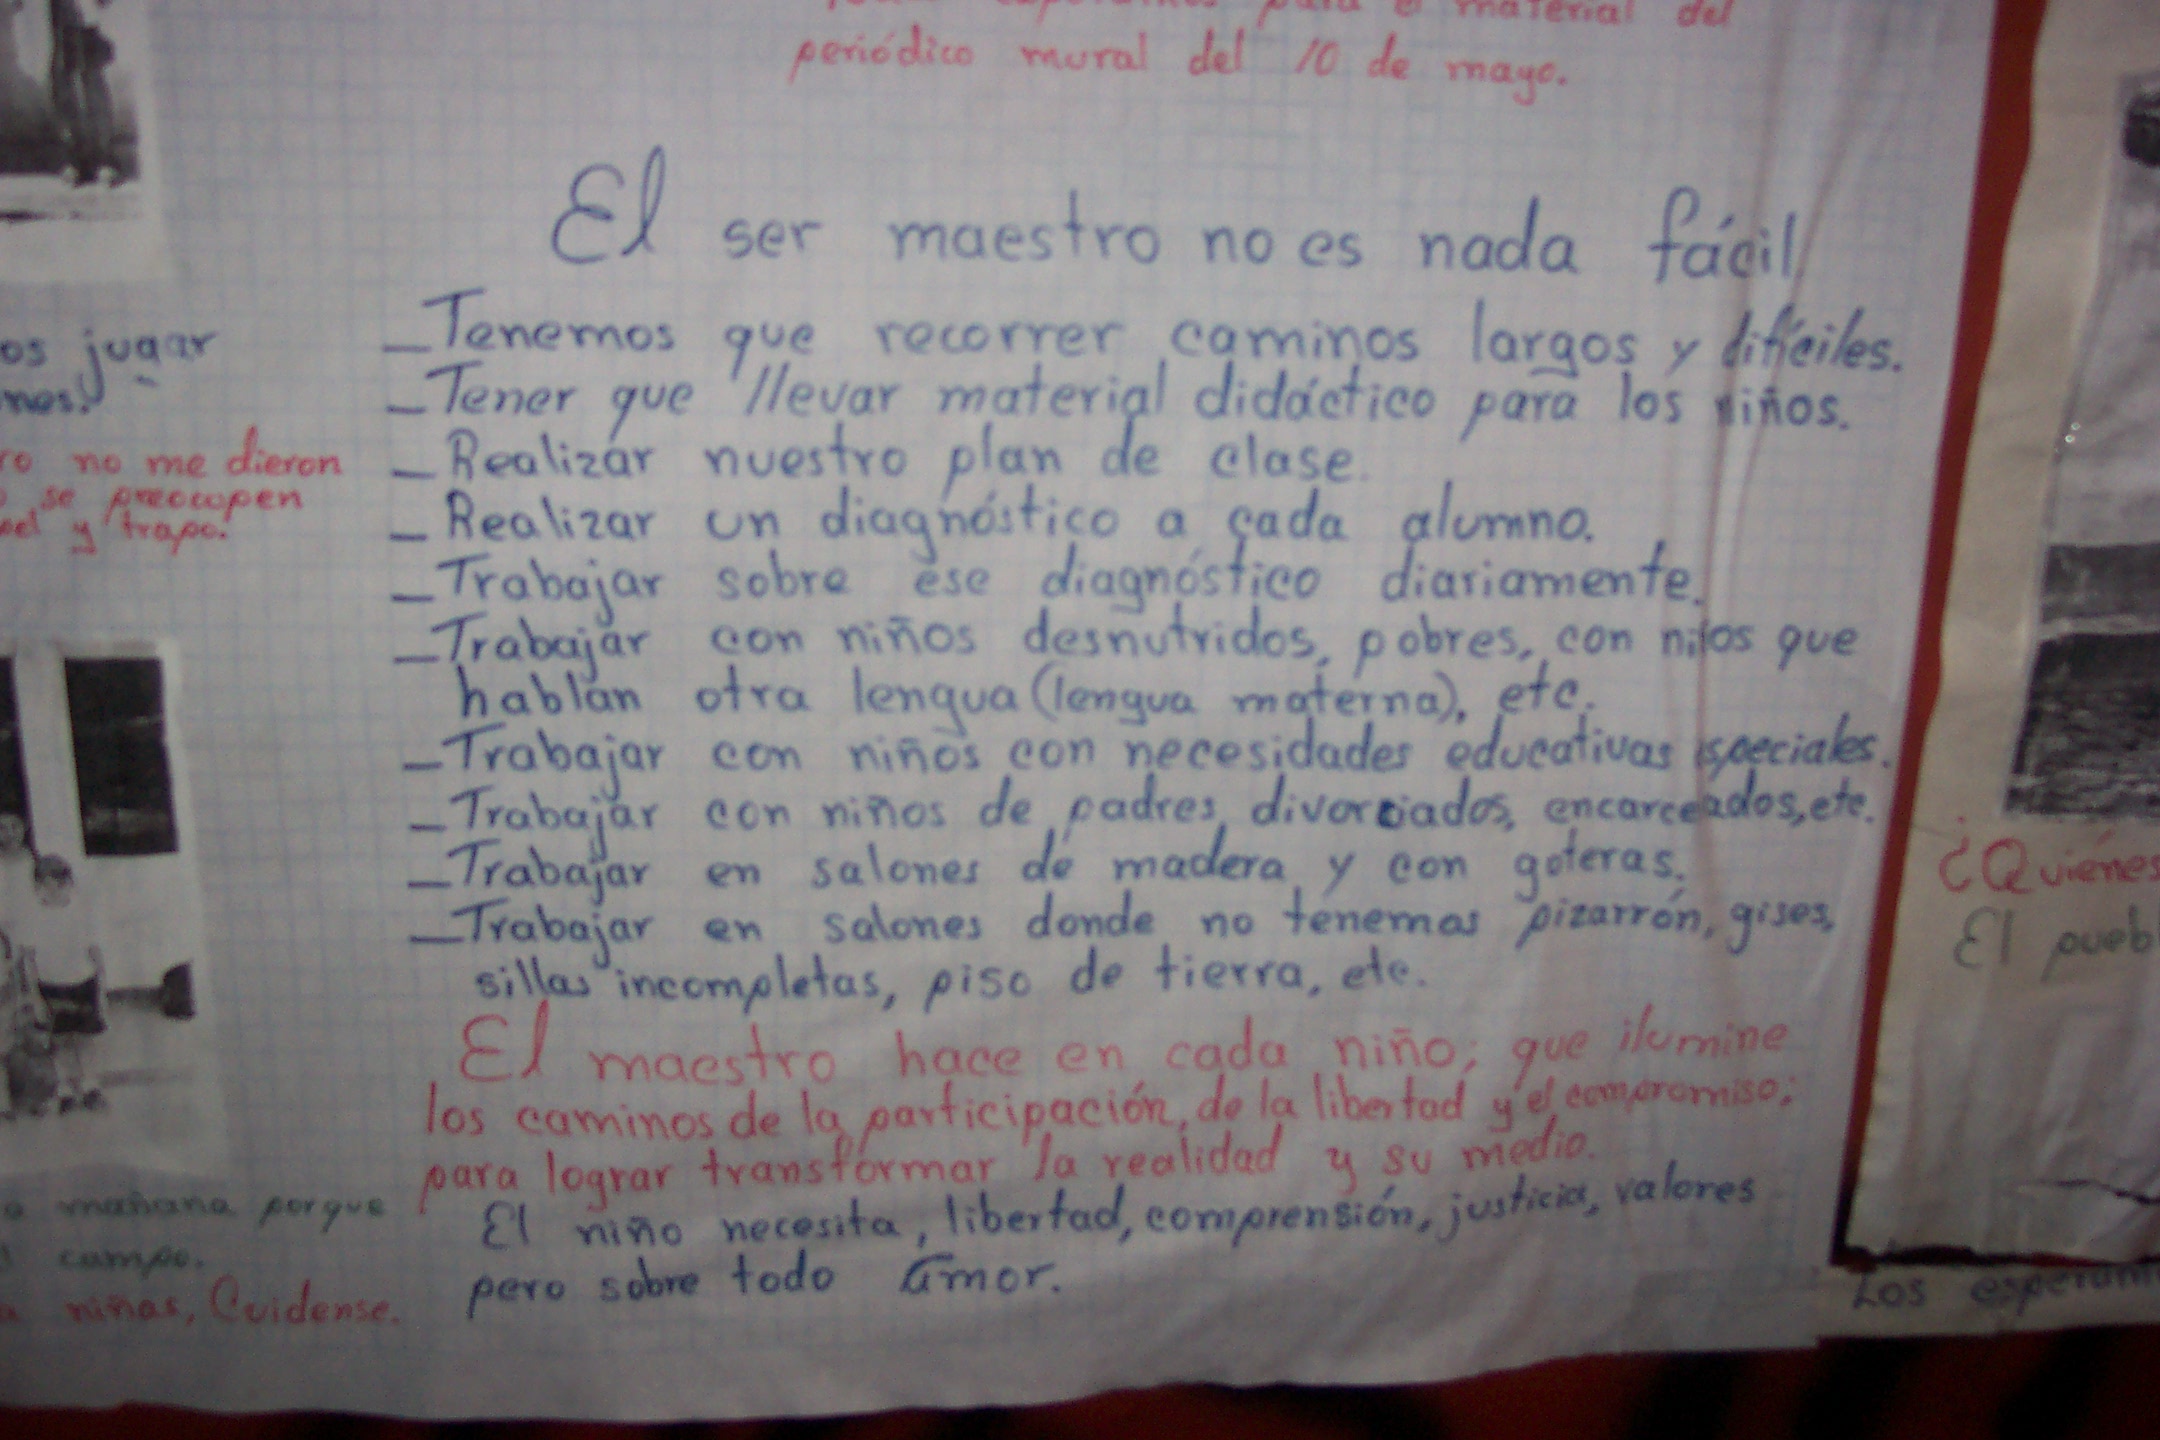 material del
periódico mural del 10 de mayo.
El ser maestro no es nada fácil
_Tenemos que recorrer caminos largos y difíciles.
_Tener que llevar material didáctico para los niños.
_Realizar nuestro plan de clase.
_Realizar un diagnóstico a cada alumno.
_Trabajar sobre ese diagnóstico diariamente.
_Trabajar con niños desnutridos, pobres, con niños que
hablan otra lengua (lengua materna), etc.
_Trabajar con niños con necesidades educativas especiales.
_Trabajar con niños de padres divorciados, encarcelados, etc.
_Trabajar en salones de madera y con goteras.
_Trabajar en salones donde no tenemos pizarrón, gises,
sillas incompletas, piso de tierra, etc.
El maestro hace en cada niño; que ilumine
los caminos de la participación, de la libertad y el compromiso;
para lograr transformar la realidad y su medio.
El niño necesita, libertad, comprensión, justicia, valores
pero sobre todo Amor.
os jugar
nes.
ro no me dieron
se preocupen
y trapo.
mañana porque
campo.
niñas, Cuidense.
¿Quiénes
El pueb
Los